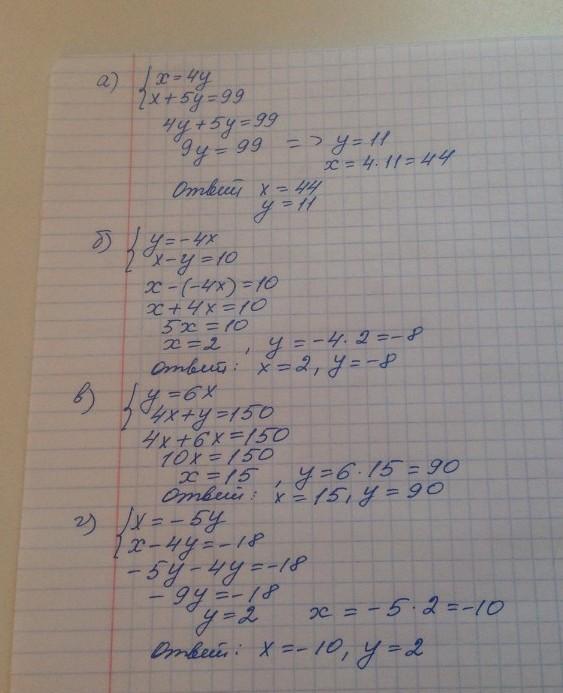 а) { x = 4y
x + 5y = 99
4y + 5y = 99
9y = 99 => y = 11
x = 4·11 = 44
Ответ x = 44
y = 11
б) { y = -4x
x - y = 10
x - (-4x) = 10
x + 4x = 10
5x = 10
x = 2, y = -4·2 = -8
Ответ: x = 2, y = -8
в) { y = 6x
4x + y = 150
4x + 6x = 150
10x = 150
x = 15, y = 6·15 = 90
Ответ: x = 15, y = 90
г) { x = -5y
x - 4y = -18
-5y - 4y = -18
-9y = -18
y = 2 x = -5·2 = -10
Ответ: x = -10, y = 2